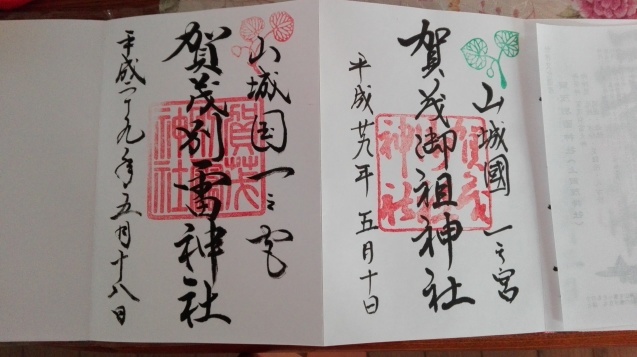 山城國一之宮
賀茂御祖神社
平成廿九年五月十日
山城国一之宮
賀茂別雷神社
平成二十九年五月十八日